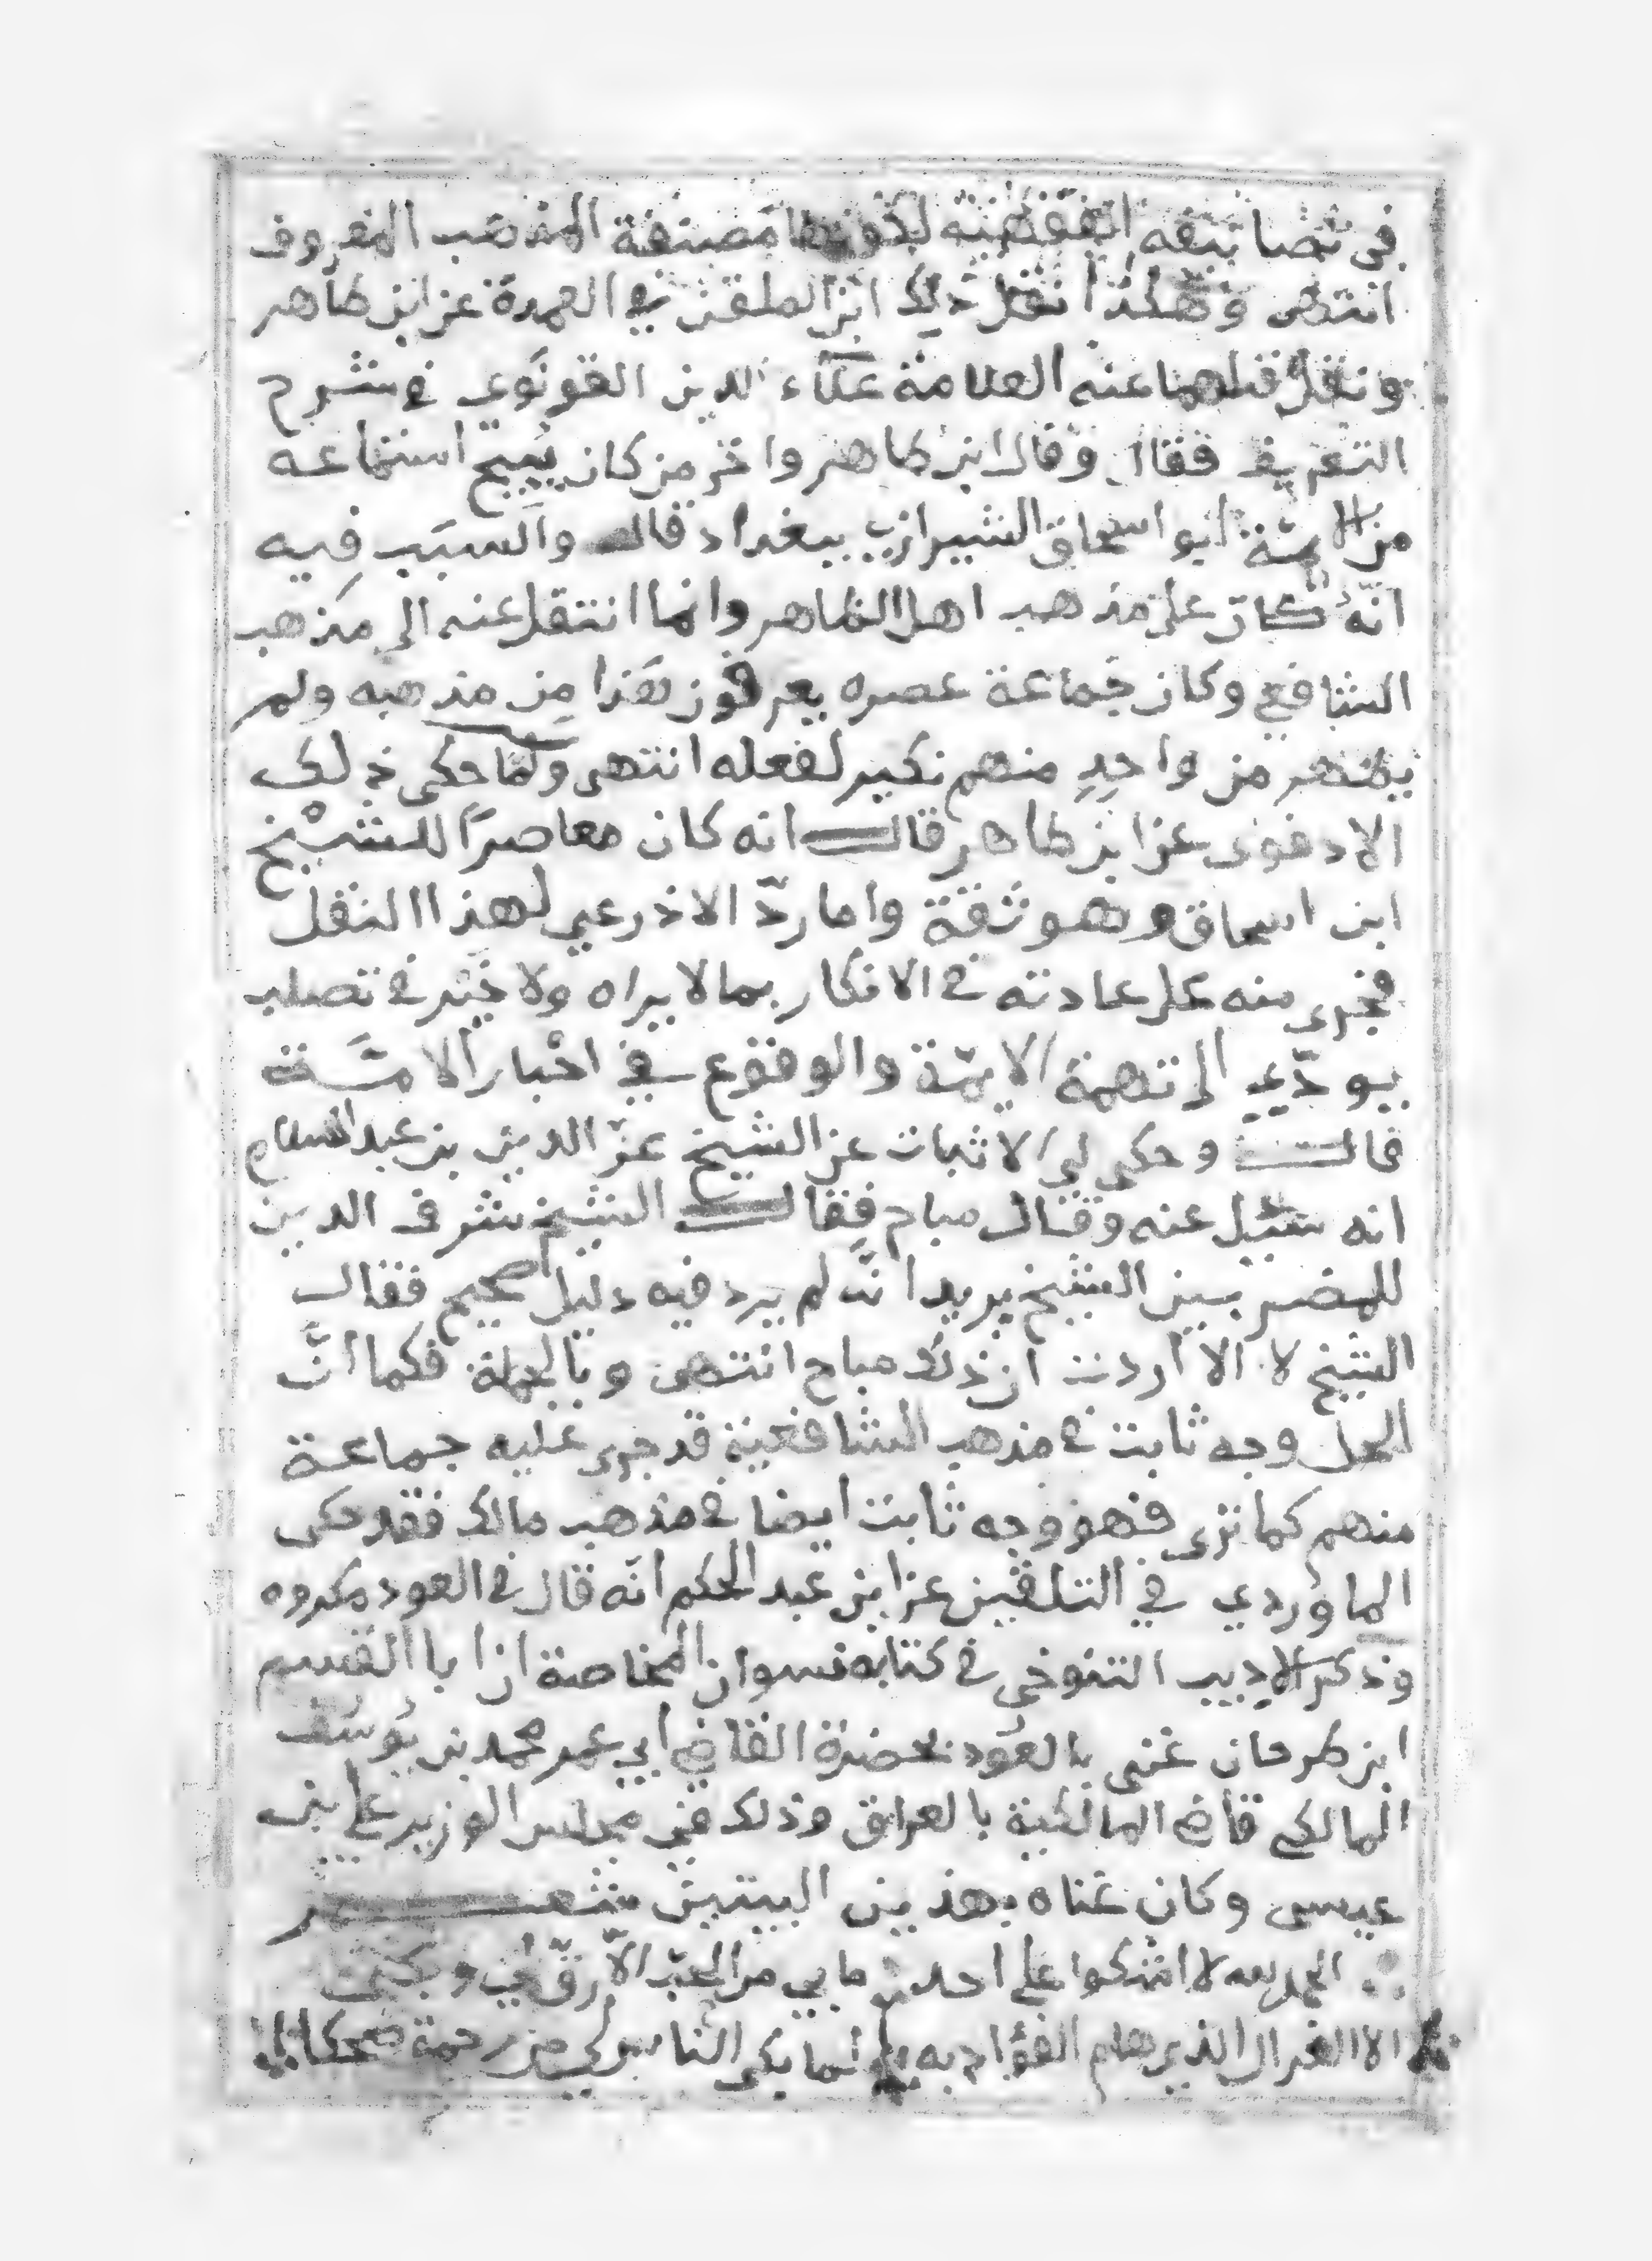 في تصانيفه الفقهية لكونها مصنفة المذهب المعروف
انتهى وهكذا نقل ذلك ابن الملقن في العمدة عن ابن طاهر
ونقل قبلهما عنه العلامة علاء الدين القونوي في شرح
التعريف فقال وقال ابن طاهر واخر من كان يبيح استماعه
من الايمة ابو اسحاق الشيرازي ببغداد قال والسبب فيه
انه كان على مذهب اهل الظاهر وانما انتقل عنه الى مذهب
الشافعي وكان جماعة عصره يعرفون هذا من مذهبه ولم
يظهر من واحد منهم نكير لفعله انتهى ولما حكى ذلك
الادفوي عن ابن طاهر قال انه كان معاصرًا للشيخ
ابن اسحاق وهو ثقة واما ردّ الاذرعي لهذا النقل
فجرى منه على عادته في الانكار بما لا يراه ولا خير في تصلب
يودّي الى تهمة الايمّة والوقوع في اخْبار الامّة
قال وحكى لي الاثبات عن الشيخ عزّ الدين بن عبد السلام
انه سئل عنه وقال مباح فقال الشيخ شرف الدين
للمضر بين الشيخ يريد انّه لم يرد فيه دليل صحيح فقال
الشيخ لا الا اردت ان ذلك مباح انتهى وبالجملة فكما انّ
الحل وجه ثابت في مذهب الشافعية قد جرى عليه جماعة
منهم كما ترى فهو وجه ثابت ايضا في مذهب مالك فقد حكى
الماوردي في التلقين عن ابن عبد الحكم انّه قال في العود مكروه
وذكر الاديب التنوخي في كتابه نسوان المخاصة ان ابا القسم
ابن طرحان غنى بالعود بحضرة القاضي ابي عمر محمد بن يوسف
المالكي قاضي المالكية بالعراق وذلك في مجلس الوزير علي بن
عيسى وكان غناه بهذين البيتين شعر
الحمد لله لا اشكوا على احد ما بي من الحبّ الّا رقّ لي وبكى
الا الغزال الذي هام الفؤاد به لما بكى الناس لي من رحمة ضحكا